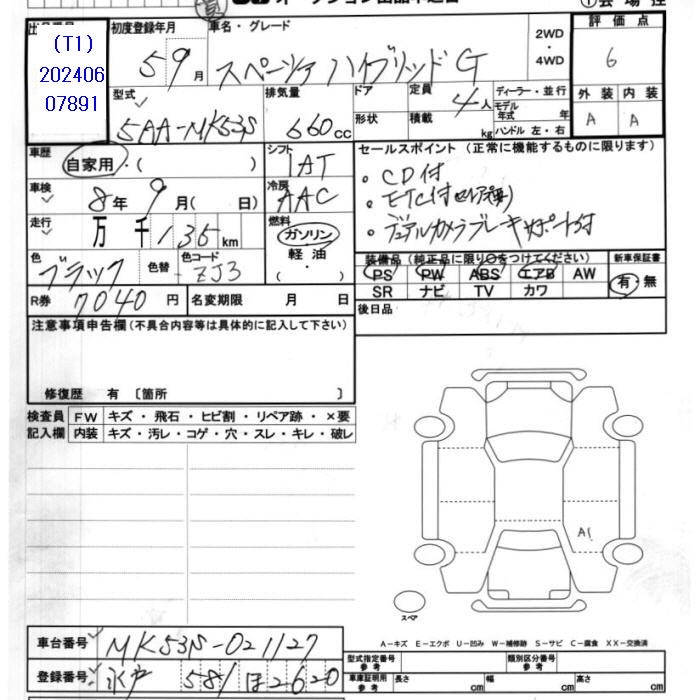 (T1)
202406
07891
初度登録年月
5 9月
車名・グレード
スペーシア ハイブリッド G
2WD
・
4WD
評価点
6
型式
5AA-MK53S
排気量
660cc
ドア
形状
定員
4人
積載
kg
ディーラー・並行
モデル
年式 年
ハンドル 左・右
外装 内装
A A
車歴
自家用・( )
シフト
IAT
セールスポイント (正常に機能するものに限ります)
・CD付
・デュアルカメラブレーキサポート付
車検
8年9月( 日)
冷房
AAC
走行
万 千 135km
燃料
ガソリン
軽油
( ・ )
色
ブラック
色替
色コード
ZJ3
装備品 (純正品に限り○をつけてください)
PS PW ABS エアB AW
SR ナビ TV カワ
新車保証書
有・無
R券 7040円
名変期限 月 日
後日品
注意事項申告欄(不具合内容等は具体的に記入して下さい)
修復歴 有 〔箇所 〕
検査員
記入欄
FW キズ・飛石・ヒビ割・リペア跡・×要
内装 キズ・汚レ・コゲ・穴・スレ・キレ・破レ
A1
スペア
A−キズ E−エクボ U−凹み W−補修跡 S−サビ C−腐食 XX−交換済
車台番号 MK53S-021127
登録番号 水戸 581 ほ2620
型式指定番号
参考
類別区分番号
参考
車庫証明用
参考
長さ cm 幅 cm 高さ cm